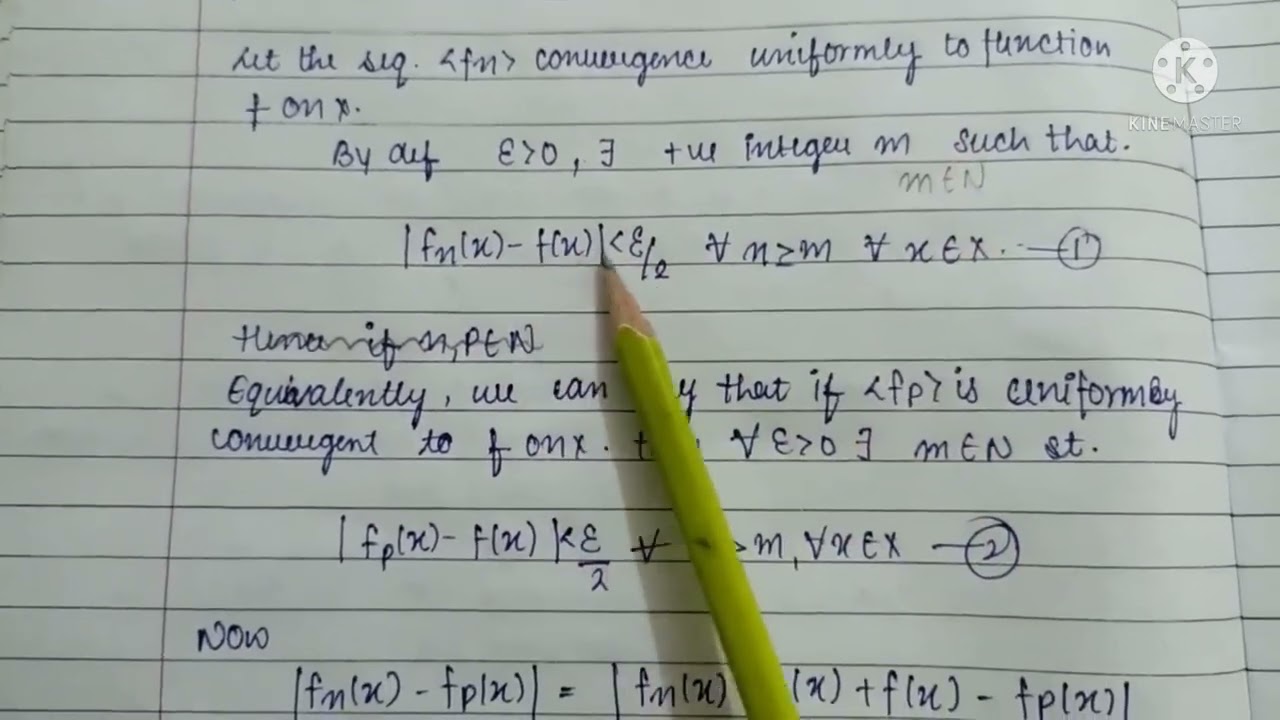 Let the seq. <fn> convergence uniformly to function
f on x.
By def ε>0, ∃ +ve integer m such that.
m∈N
|fn(x) - f(x)|<ε/2 ∀ n≥m ∀ x∈X. —①
Hence if n,p∈N
Equivalently, we can that if <fp> is uniformly
convergent to f on x. ∀ ε>0 ∃ m∈N st.
|fp(x) - f(x)|<ε/2 ∀ m, ∀x∈X —②
Now
|fn(x) - fp(x)| = |fn(x) (x) + f(x) - fp(x)|
K
KINEMASTER